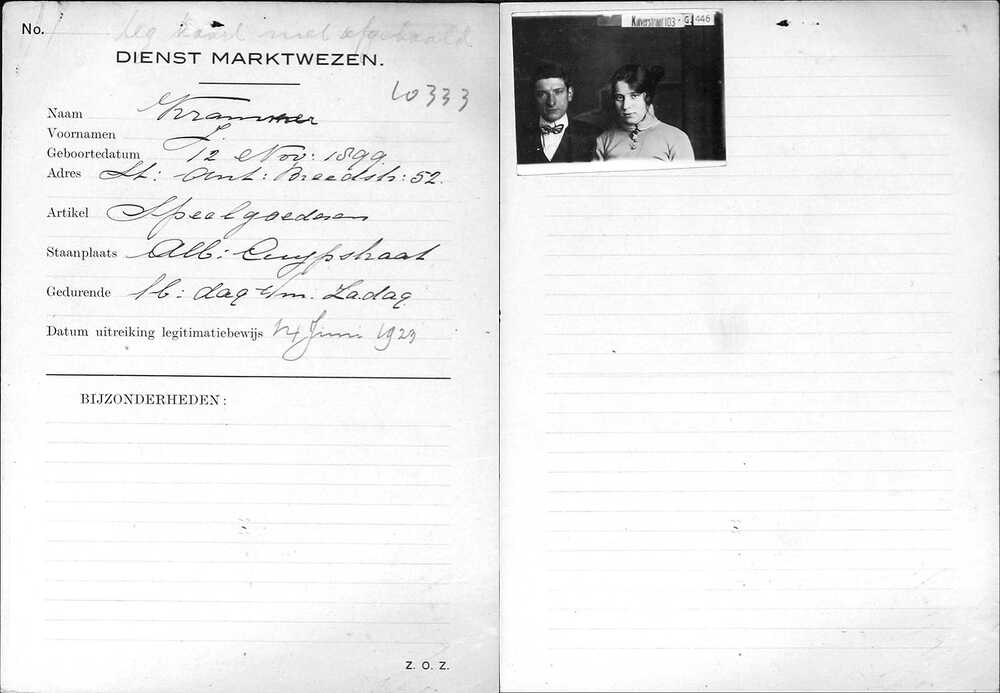 No. Leg kaart niet afgehaald
DIENST MARKTWEZEN.
10333
Naam Krammer
Voornamen J.
Geboortedatum 12 Nov: 1899.
Adres St: Ant: Breedstr: 52.
Artikel Speelgoederen
Staanplaats Alb: Cuypstraat
Gedurende Mb: dag t/m. Zadag
Datum uitreiking legitimatiebewijs 14 Juni 1923
BIJZONDERHEDEN:
Z. O. Z.
Kalverstraat 103 - G. 446